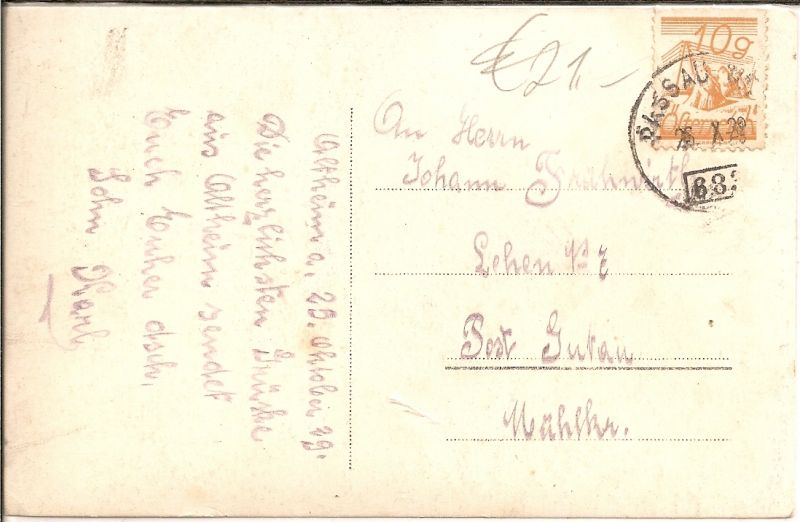 €21.-
10g
PASSAU
X 29
683
Altheim a. 25. Oktober 29.
Die herzlichsten Grüße
aus Altheim sendet
Euch Euher
Sohn Karl
An Herrn
Johann Frühwirth
Lehen № 7
Post Gutau
Mühlkr.